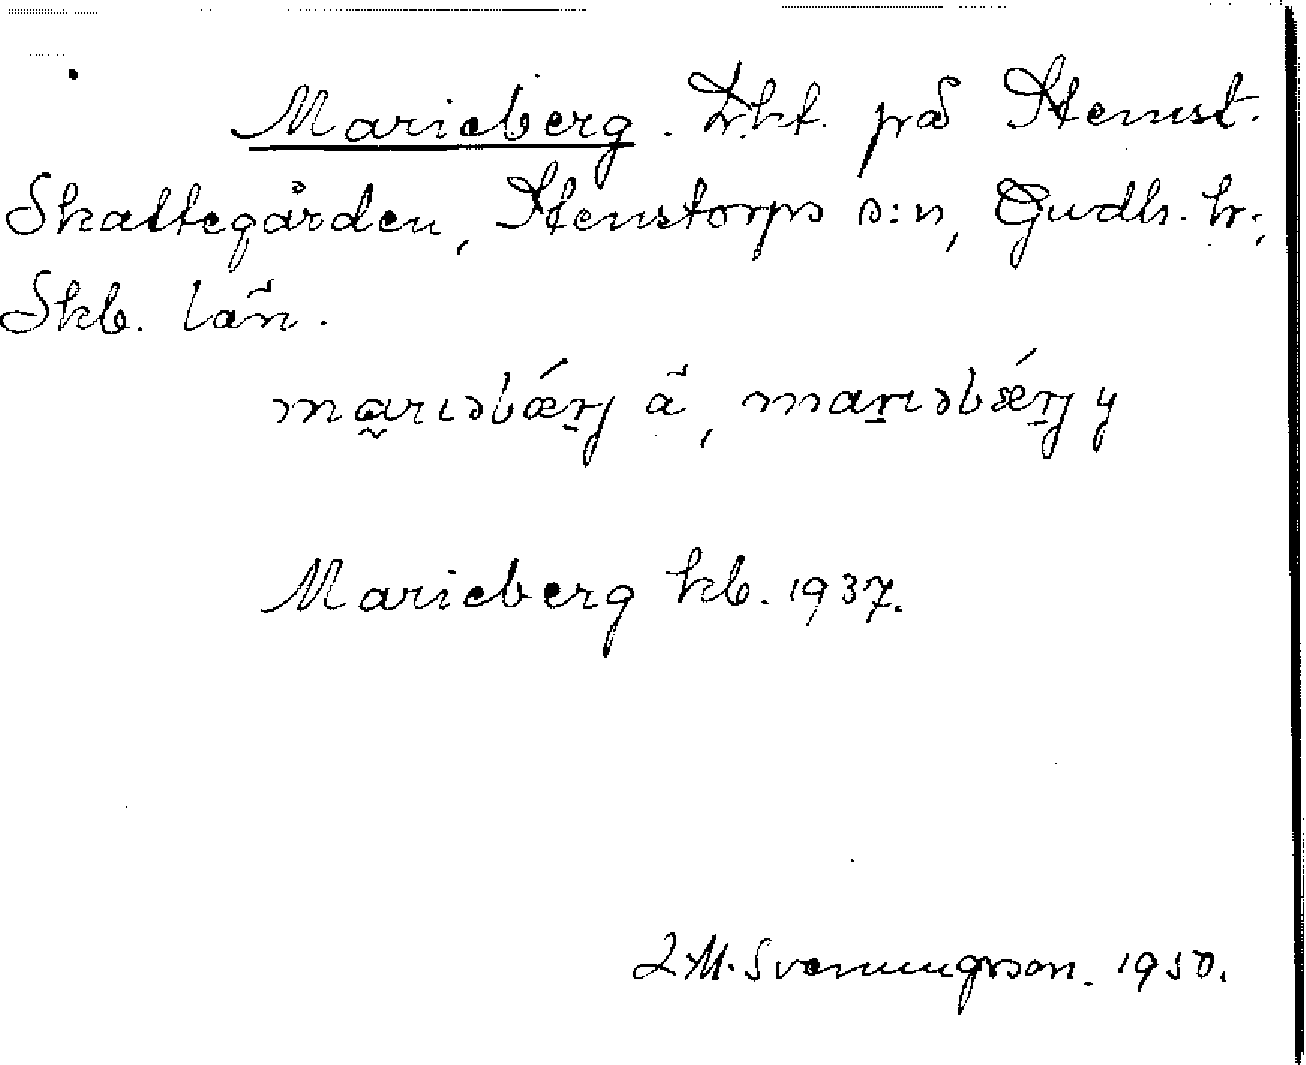 Marieberg. Lht. på Stemst.
Skattegården, Stenstorps s:n, Gudh. hr.,
Skb. län.
marıəbǽrj ä̃, marıəbǽrj y
Marieberg kb. 1937.
L M. Svenungsson. 1950.